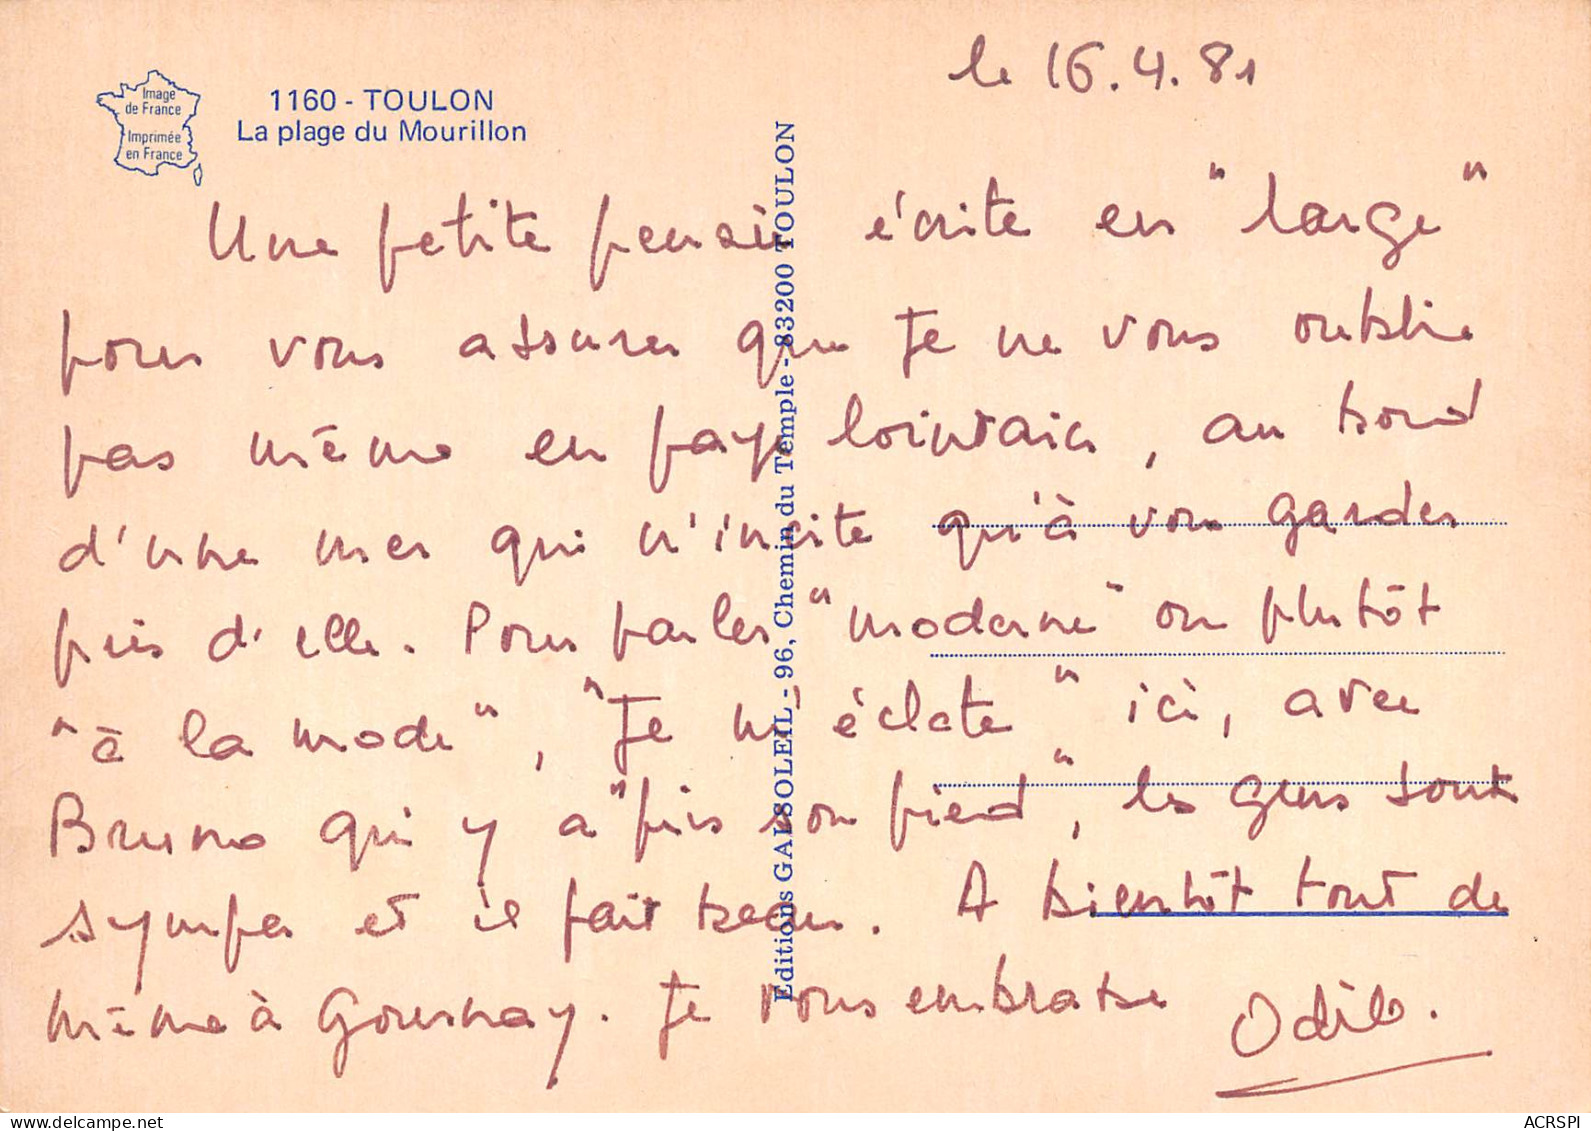 le 16.4.81
Image
de France
Imprimée
en France
1160 - TOULON
La plage du Mourillon
Editions GAI-SOLEIL - 96, Chemin du Temple - 83200 TOULON
Une petite pensée écrite en "large"
pour vous assurer que je ne vous oublie
pas même en pays lointain, au bord
d'une mer qui n'incite qu'à vous garder
près d'elle. Pour parler "moderne" ou plutôt
"à la mode", "je m'éclate" ici, avec
Bruno qui y a "pris son pied", les gens sont
sympa et il fait beau. A bientôt tout de
même à Gournay. Je vous embrasse Odile.
www.delcampe.net
ACRSPI